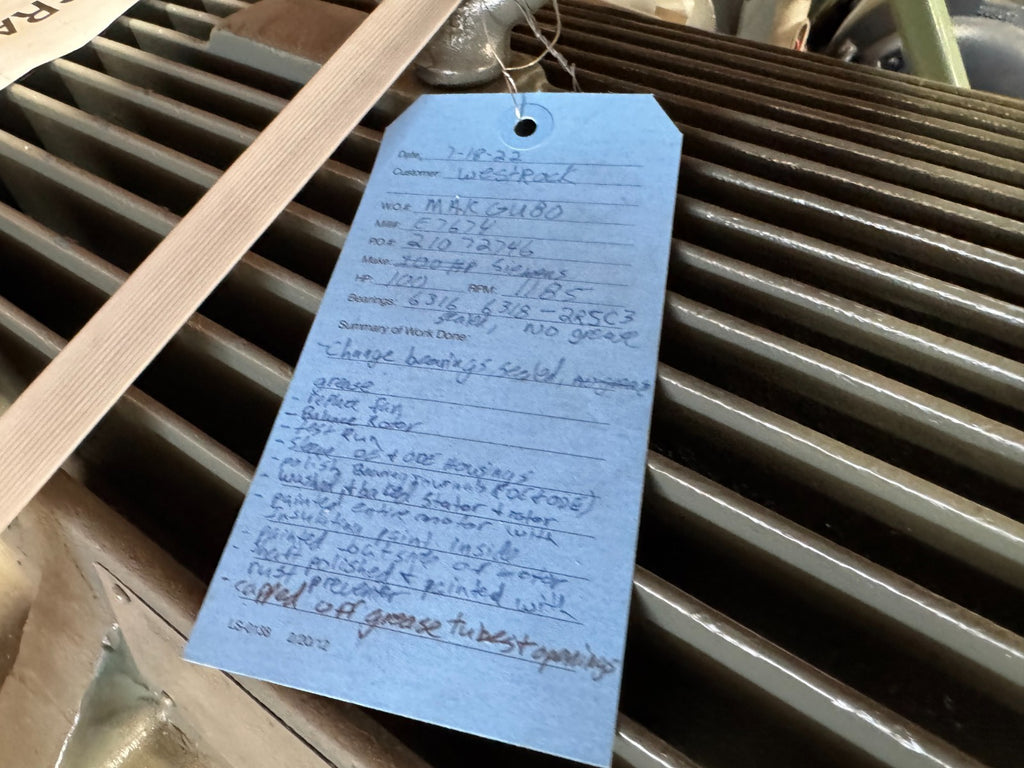 CRA
Date: 7-18-22
Customer: WestRock
W.O.#: MAK GU80
M/I#: E7674
P.O.#: 21072746
Make: 100 HP Siemens
HP: 100 RPM: 1185
Bearings: 6316 6318-2RSC3
Sealed, NO grease
Summary of Work Done:
-Change bearings sealed,
grease
- fan
- Balance Rotor
- Test Run
- Sleeve DE + ODE HOUSINGS
- polish Bearing Journals (DE+ODE)
- washed + baked stator + rotor
- painted entire motor with
insulation paint inside
- painted outside of motor
- Shaft polished + painted with
rust preventer
- capped off grease tubes + openings
LS-0138 2/20/12